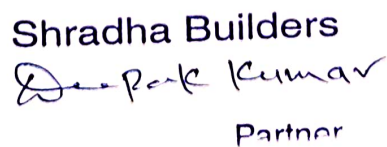 Shradha Builders
Deepak Kumar
Partner